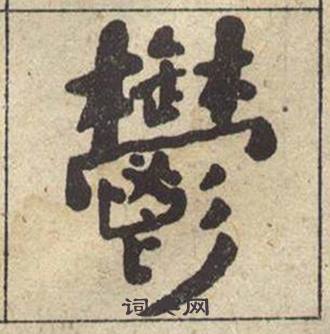 鬱
词典网